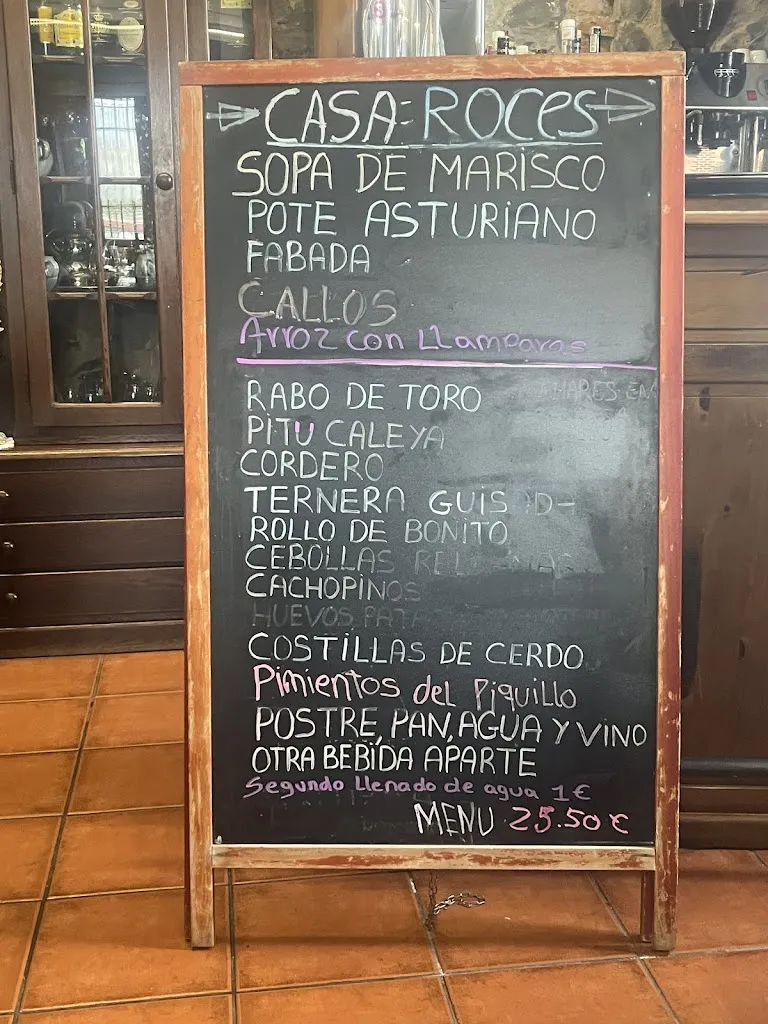 CASA ROCES
SOPA DE MARISCO
POTE ASTURIANO
FABADA
CALLOS
Arroz con Llamparas
RABO DE TORO
PITU CALEYA
CORDERO
TERNERA
ROLLO DE BONITO
CEBOLLAS
CACHOPINOS
HUEVOS
COSTILLAS DE CERDO
Pimientos del Piquillo
POSTRE, PAN, AGUA Y VINO
OTRA BEBIDA APARTE
Segundo Llenado de agua 1€
MENU 25.50€